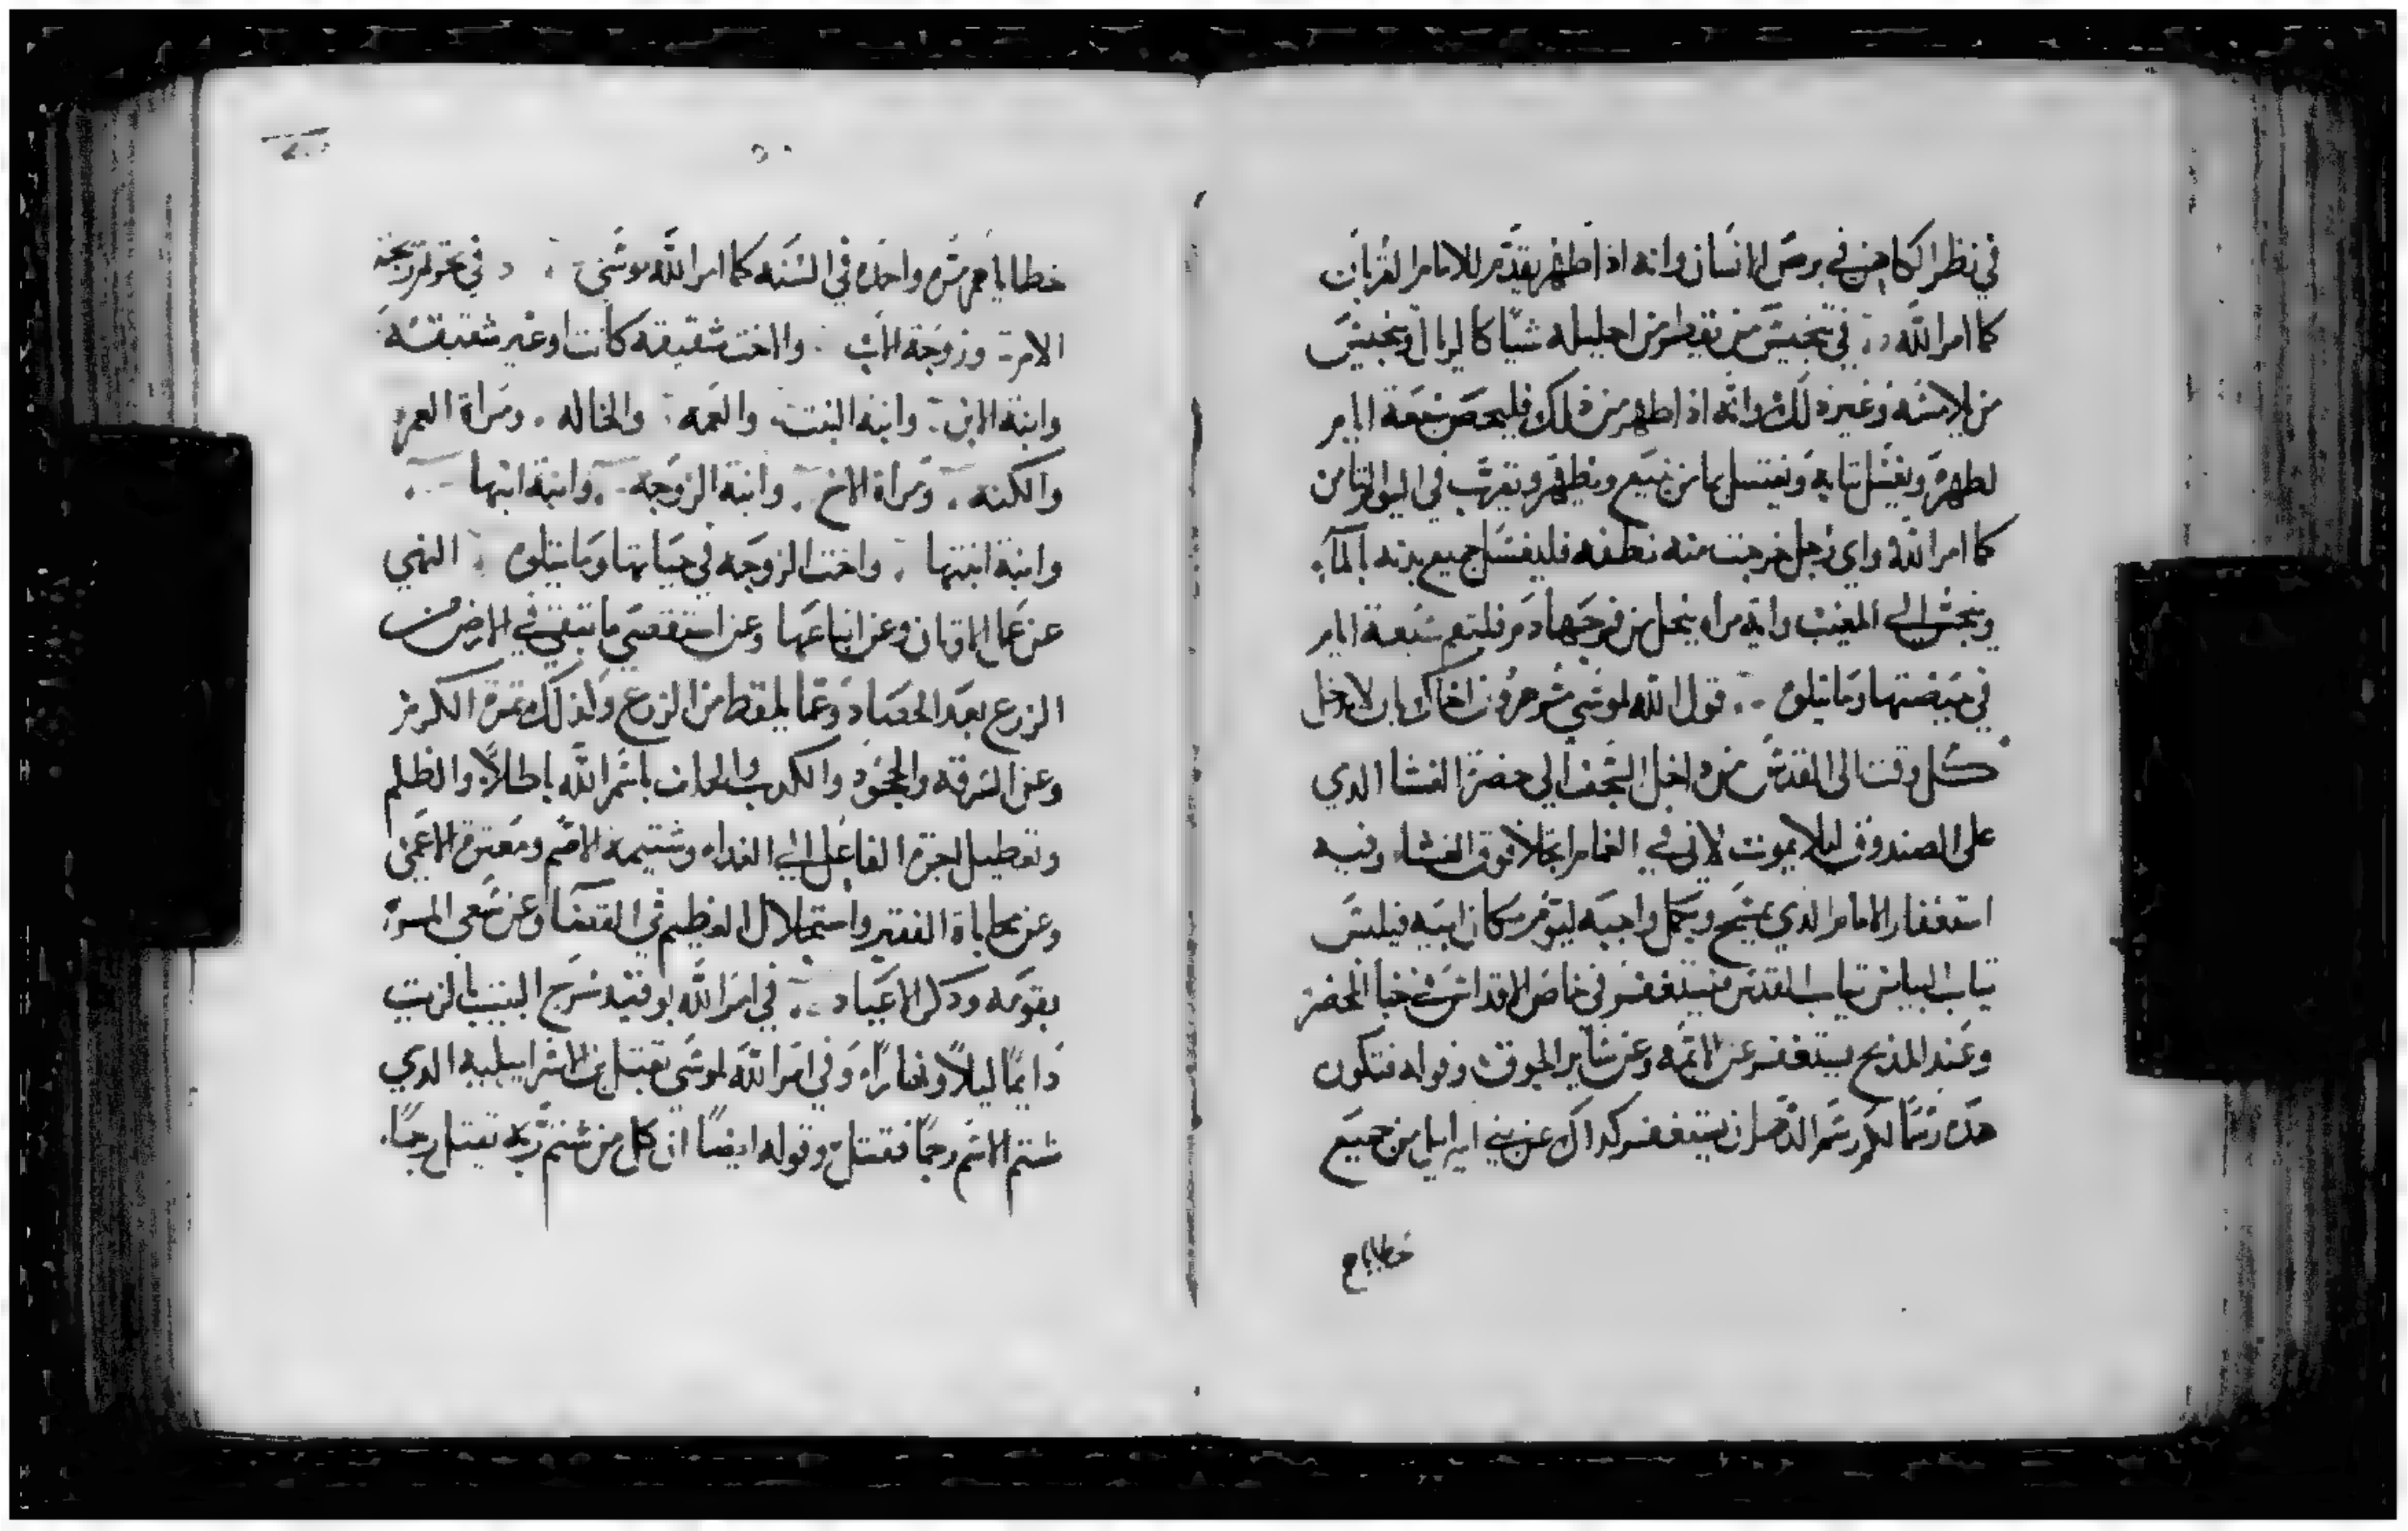 في نظر الكاهن في برص الانسان وانه اذا طهر يقدم للامام القربان
كما امر الله في تنجيس من تقطر من احليله شيا كالريال وتنجيس
من يلامسه وغير ذلك وانه اذا طهر من ذلك فليحص سبعة ايام
لطهره ويغسل تيابه ويغتسل بما من نبيع ويطهر ويقرب في اليوم التامن
كما امر الله واي رجل خرجت منه نطفه فليغسل جميع بدنه بالمآ
وينجس الي المغيب وايه مراه ينحل من فرجها دم فلتقم سبعة ايام
في حيضتها وما يتلوه قول الله لموسي مر هرون اخاك بان لا يدخل
كل وقت الى القدس من داخل السجف الي حضرة الغشا الدي
على الصندوق ليلا يموت لاني في الغمام اتجلا فوق الغشاء وفيه
استغفار الامام الدي يمسح ويكمل واجبه ليوم مكان ابيه فيلبس
تياب البياض تياب القدس فيستغفر في خاص الاقداس خبا المحضر
وعند المذبح يستغفر عن الايمه وعن ساير الجوق وقوله فتكون
هذه رسما لكم رسم الدهر ان يستغفر كداك عن بني اسراييل من جميع
خطاياهم
خطاياهم مره واحده في السنه كما امر الله موسي في تحريم زيجة
الام وزوجة الاب والاخت شقيقه كانت او غير شقيقه
وابنة الابن وابنة البنت والعمه والخاله ومراة العم
والكنه ومراة الاخ وابنة الزوجه وابنة ابنها
وابنة ابنتها واخت الزوجه في حياتها وما يتلوه النهي
عن عمل الاوتان وعن اتباعها وعن استقصي ما تبقي في الارض من
الزرع بعد الحصاد وعما يلتقط من الزرع وكذلك تمرة الكرم
وعن السرقه والجحود والكدب والحلف باسم الله باطلاً والظلم
وتعطيل اجرة الفاعل الي الغداه وشتيمة الاصم ومعترة الاعمى
وعن محاباة الفقير واستجلال العظيم في القضا وعن سعى المسو
بقومه ودكر الاعياد في امر الله بوقيد سرج البيت بالزيت
دايمًا ليلاً ونهارًا وفي امر الله لموسى بقتل ابن الاسراييليه الدي
شتم الاسم رجمًا فقتل وقوله ايضًا ان كل من شتم ربه يقتل رجمًا